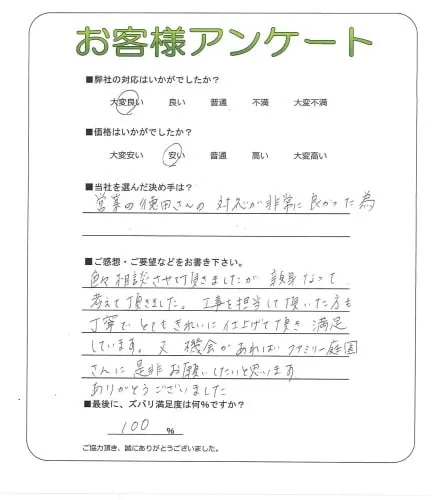 お客様アンケート
■弊社の対応はいかがでしたか?
大変良い 良い 普通 不満 大変不満
■価格はいかがでしたか?
大変安い 安い 普通 高い 大変高い
■当社を選んだ決め手は?
営業の徳田さんの対応が非常に良かった為
■ご感想・ご要望などをお書き下さい。
色々相談させて頂きましたが親身なって
考えて頂きました。工事を担当して頂いた方も
丁寧でとてもきれいに仕上げて頂き満足
しています。又機会があればファミリー庭園
さんに是非お願いしたいと思います
ありがとうございました
■最後に、ズバリ満足度は何%ですか?
100 %
ご協力頂き、誠にありがとうございました。